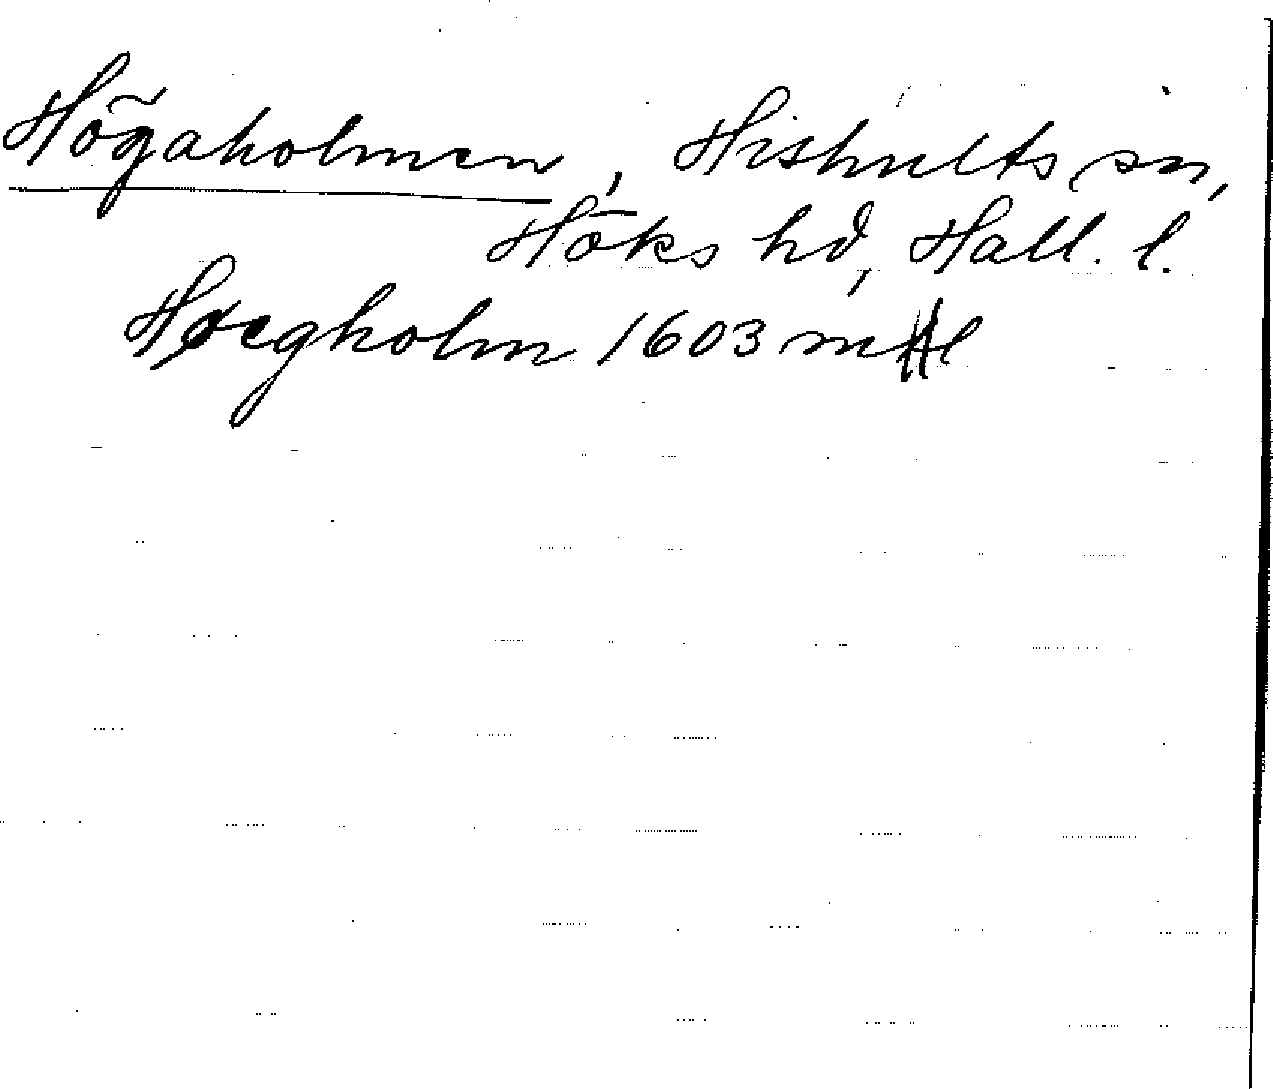 Högaholmen, Hishults sn,
Höks hd, Hall. l.
Høegholm 1603 m